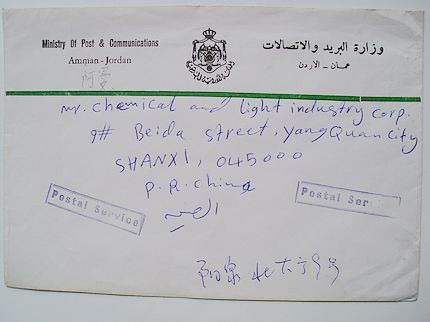 Ministry Of Post & Communications
Amman - Jordan
وزارة البريد والاتصالات
عمـان - الأردن
mr. chemical and light industry corp.
9# Beida street, yangquan city
SHANXI, 045000
P.R. china
الصين
Postal Service
Postal Ser
阳泉北大方9号